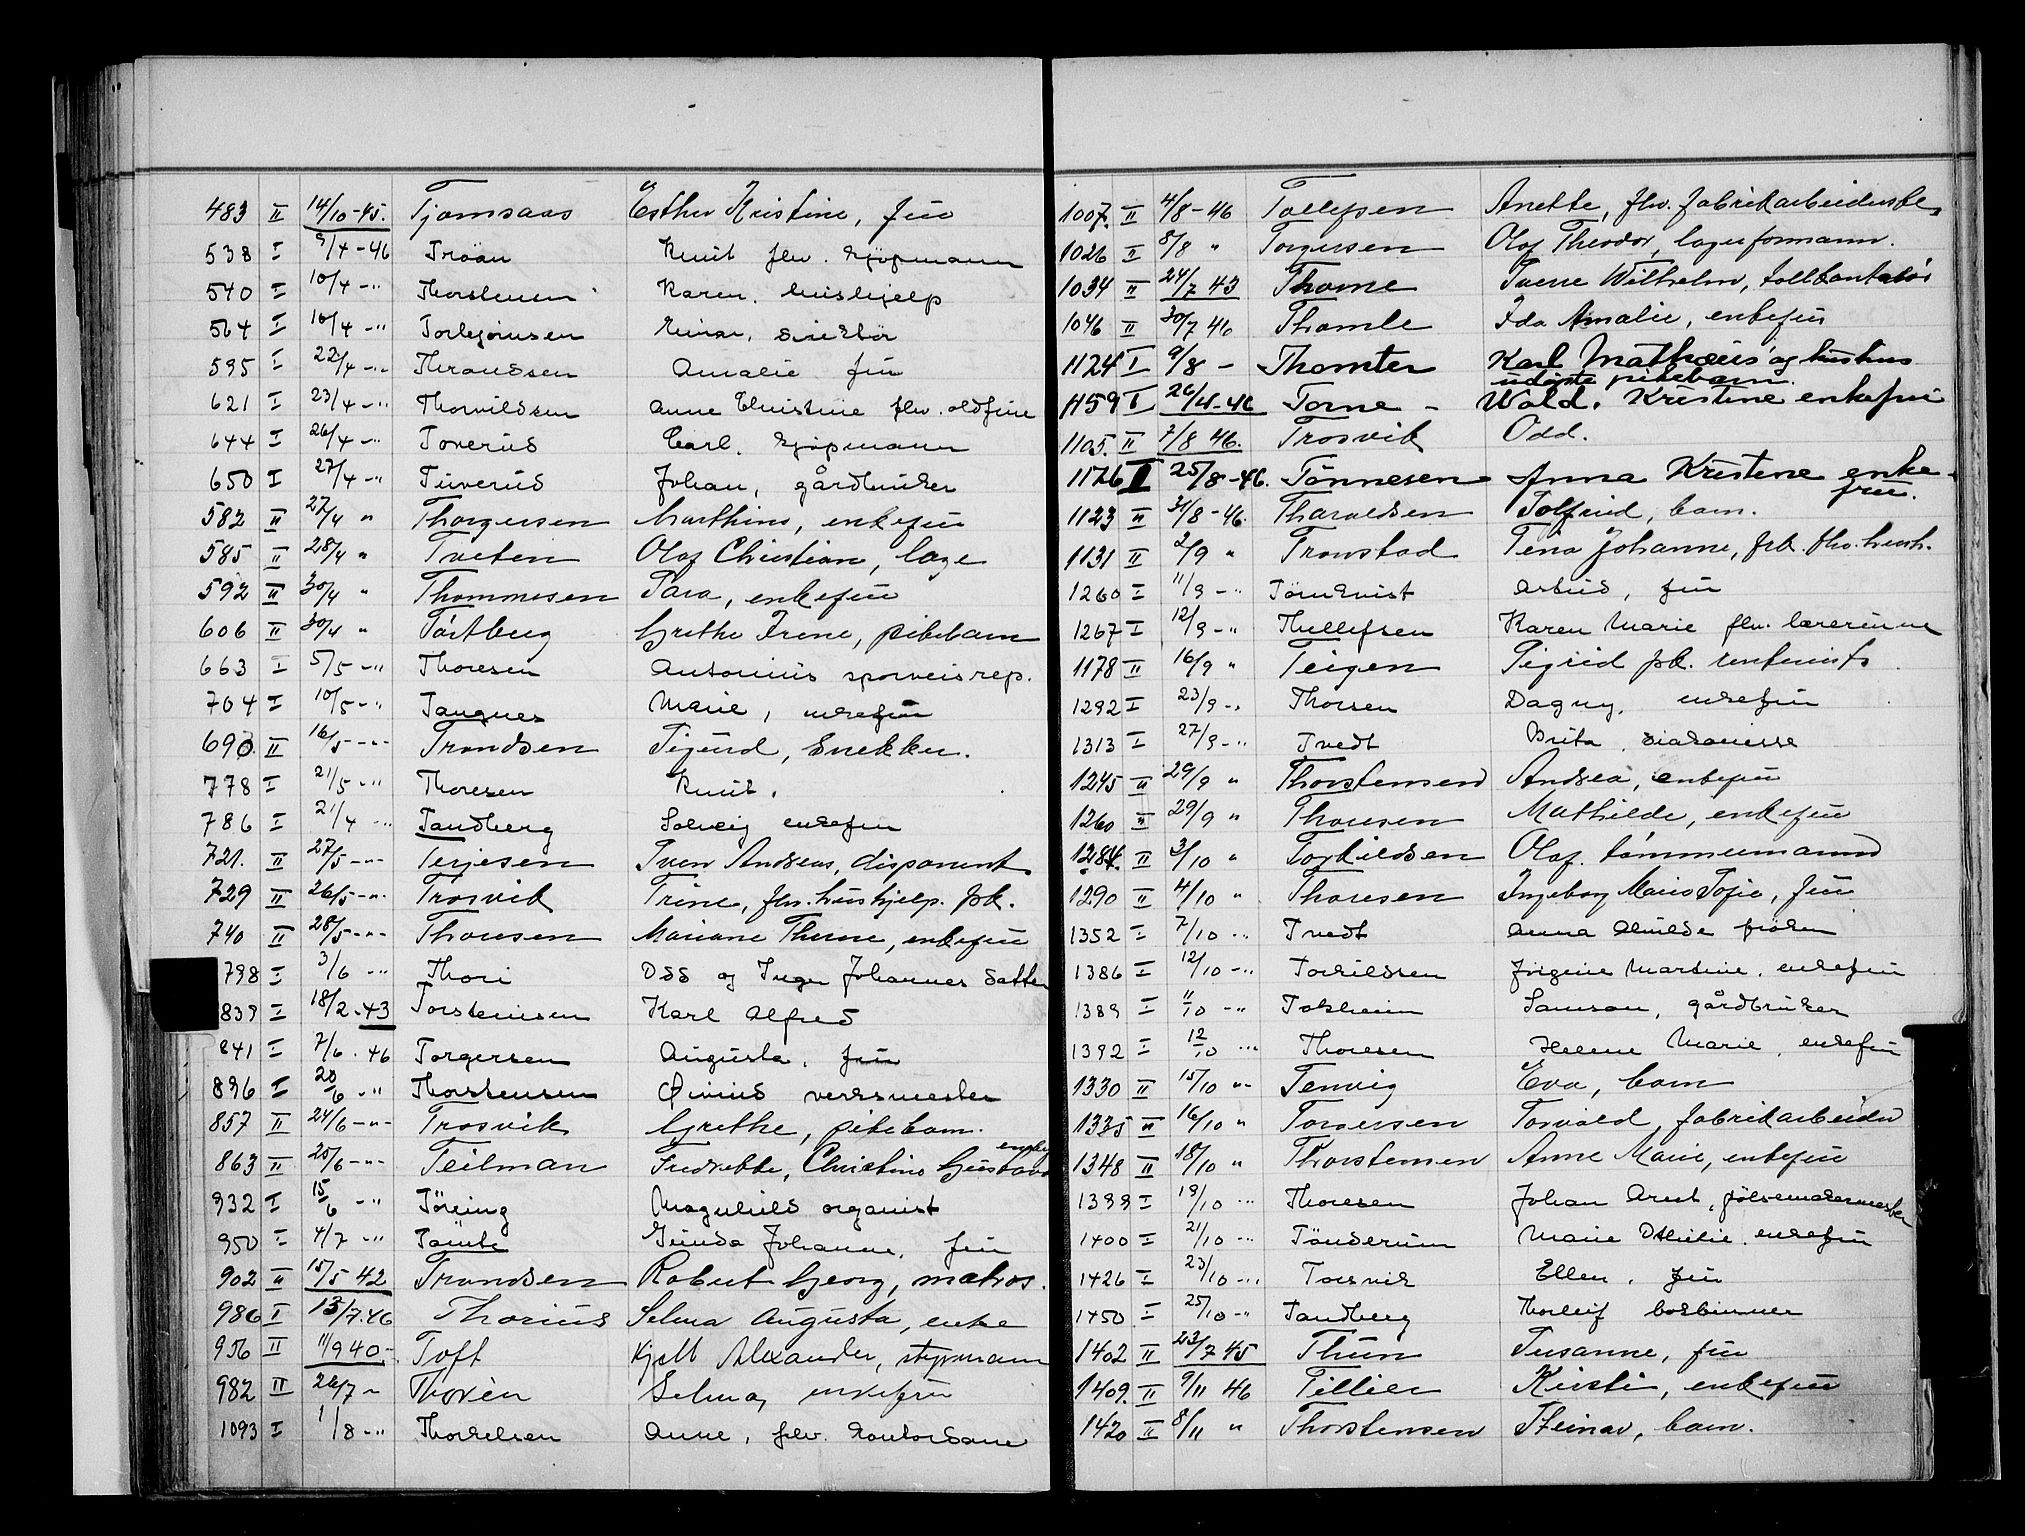 483 II 14/10-45. Tjomsaas Esther Kristine, frue
538 I 9/4-46 Tröan Knut fhv. kjøpmann
540 I 10/4 -"- Thorstensen Karen, hushjelp
564 I 10/4 -"- Torbjørnsen Einar, direktør
595 I 22/4 -"- Throndsen Amalie frue
621 I 23/4 -"- Thorvildsen Anne Christine fhv. oldfrue
644 I 26/4 -"- Toverud Carl, kjøpmann
650 I 27/4 -"- Tuverud Johan, gårdbruker
582 II 27/4 " Thorgersen Marthine, enkefrue
585 II 28/4 " Tveten Olaf Christian, lage
592 II 30/4 " Thommesen Sara, enkefrue
606 II 30/4 " Tårtberg Grethe Irene, pikebarn
663 I 5/5 -"- Thoresen Antonius sporveisrep.
704 I 10/5 -"- Tangnes Marie, enkefrue
690. II 16/5 -"- Trondsen Sigurd, snekker.
778 I 21/5 -"- Thoresen Knut.
786 I 21/4 -"- Tandberg Solveig enkefrue
721. II 27/5 -"- Terjesen Sven Andreas, disponent
729 II 26/5 -"- Trosvik Trine, fhv. hushjelp. frk.
740 II 28/5 -"- Thoresen Mariane Therese, enkefrue
798 I 3/6 -"- Thori Odd og Inger Johannes datter
839 I 18/2-43 Torsteinsen Karl Alfred
841 I 7/6. 46 Torgersen Augusta, frue
896 I 20/6 -"- Thorstensen Øivind verksmester
857 II 24/6 -"- Trosvik Grethe, pikebarn.
863 II 25/6 -"- Teilman Fredrikke, Christine Gustava enke
932 I 15/6 -"- Töreing Magnhild organist
950 I 4/7 -"- Tömte Gunda Johanne, frue
902 II 15/5 42 Trondsen Robert Georg, matros.
986 I 13/7.46 Thorius Selma Augusta, enke
956 II 11/9 40- Toft Kjell Alexander, styrmann
982 II 26/7 " Thorèn Selma, enkefrue
1093 I 1/8 -"- Thorkelsen Anne, fhv. kontordame
1007. II 4/8-46 Tollefsen Anette, fhv. fabrikarbeiderske
1026 II 8/8 " Torgersen Olaf Theodor, lagerformann.
1034 II 24/7 43 Thorne Sverre Wilhelm, tollkontrolør
1046 II 30/7 46 Thomle Ida Amalie, enkefrue
1124 I 9/8 - Thomter Karl Mathæus og hustrus
udøpte pikebarn.
1159 I 26/4-46 Torne - Wold. Kristine enkefrue
1105. II 7/8 46. Trosvik Odd.
1176 I 25/8-46. Tönnesen Anna Kristine enke-
frue.
1123 II 31/8-46. Tharaldsen Solfrid, barn.
1131 II 2/9 " Tronstad Tena Johanne, frk. fhv. hush.
1260 I 11/9 -"- Törnkvist Astrid, frue
1267 I 12/9 -"- Thellefsen Karen Marie fhv. lærerinne
1178 II 16/9 " Teigen Sigrid frk. rentenist
1292 I 23/9 -"- Thorsen Dagny, enkefrue
1313 I 27/9 -"- Tvedt Brita, diakonisse
1245 II 29/9 " Thorstensen Andrea, enkefrue
1260 II 29/9 " Thoresen Mathilde, enkefrue
1284. II 3/10 " Torkildsen Olaf. tømmermann
1290 II 4/10 " Thoresen Ingeborg Marie Sofie, frue
1352 I 7/10 -"- Tvedt Anna Alvilde frøken
1386 I 12/10 -"- Torkildsen Jörgine Martine, enkefrue
1389 I 11/10 -"- Tokheim Samson, gårdbruker
1392 I 12/10 -"- Thoresen Helene Marie, enkefrue
1330 II 15/10 -"- Tenvig Eva, barn
1335 II 16/10 " Torgersen Torvald, fabrikarbeider
1348 II 18/10 " Thorstensen Anne Marie, enkefrue
1399 I 19/10 -"- Thoresen Johan Arnt, pølsemakermester
1400 I 21/10 -"- Tönderum Marie Othilie, enkefrue
1426 I 23/10 -"- Torsvik Ellen, frue
1450 I 25/10 -"- Tandberg Thorleif bokbinner
1402 II 23/7 45 Thun Susanne, frue
1409. II 9/11 46 Tillier Kirsti, enkefrue
1420 II 8/11 " Thorstensen Steinar, barn.